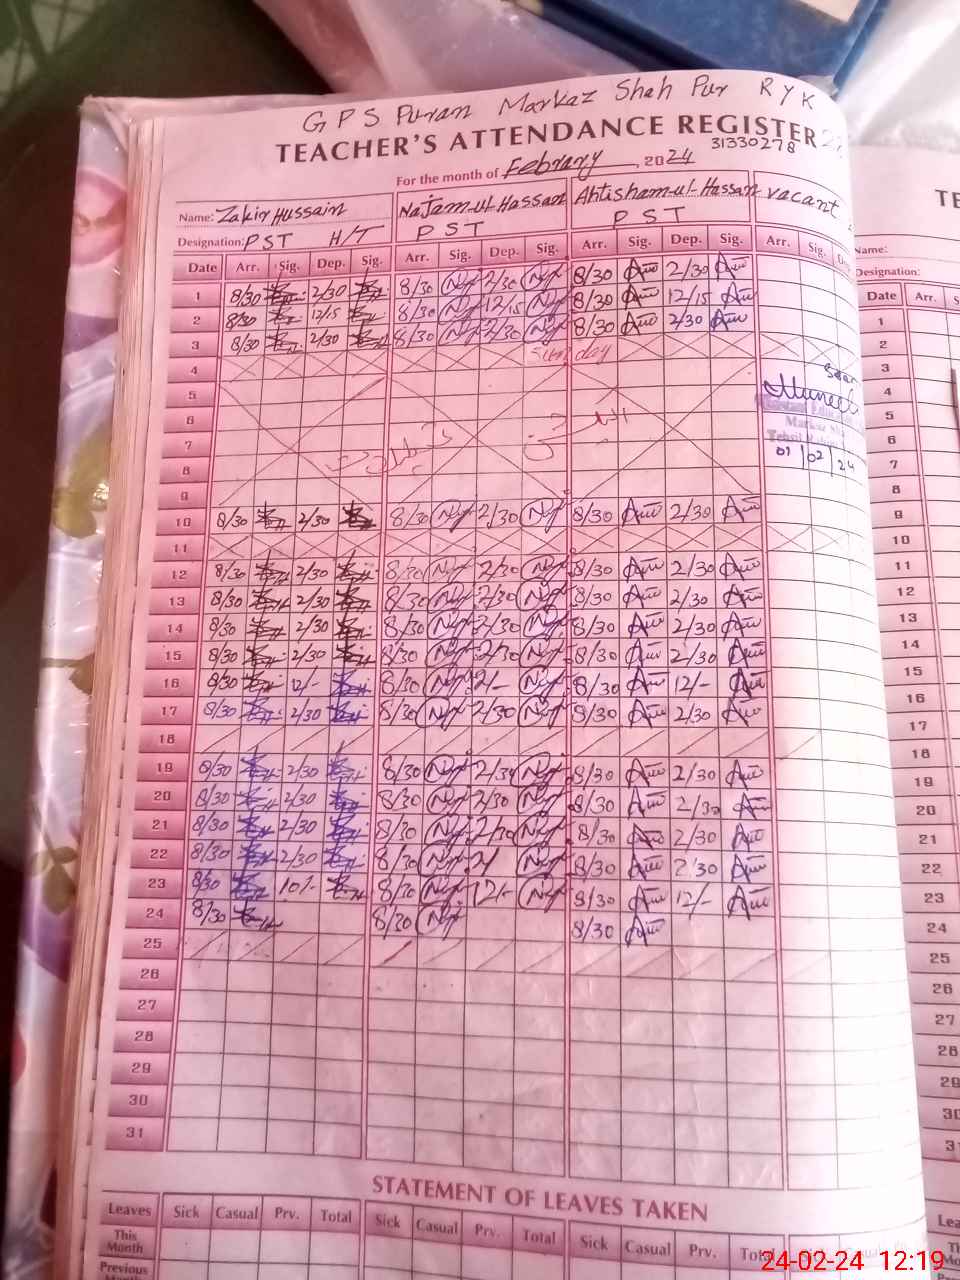 GPS Puran Markaz Shah Pur RYK
TEACHER'S ATTENDANCE REGISTER
31330278
For the month of Febrary, 2024
Name: Zakir Hussain Najam-ul-Hassan Ahtisham-ul-Hassan vacant
Designation: PST H/T PST PST
Date Arr. Sig. Dep. Sig. Arr. Sig. Dep. Sig. Arr. Sig. Dep. Sig. Arr. Sig.
1 8/30 2/30 8/30 2/30 8/30 2/30
2 8/30 12/15 8/30 12/15 8/30 12/15
3 8/30 2/30 8/30 2/30 8/30 2/30
4 Sunday
5
6
7
8
9
01/02/24
10 8/30 2/30 8/30 2/30 8/30 2/30
11
12 8/30 2/30 8/30 2/30 8/30 2/30
13 8/30 2/30 8/30 2/30 8/30 2/30
14 8/30 2/30 8/30 2/30 8/30 2/30
15 8/30 2/30 8/30 2/30 8/30 2/30
16 8/30 12/- 8/30 8/30 12/-
17 8/30 2/30 8/30 2/30 8/30 2/30
18
19 8/30 2/30 8/30 8/30 2/30
20 8/30 2/30 8/30 2/30 8/30 2/30
21 8/30 2/30 8/30 2/30 8/30 2/30
22 8/30 2/30 8/30 8/30 2/30
23 8/30 10/- 8/30 12/- 8/30 12/-
24 8/30 8/30 8/30
25
26
27
28
29
30
31
STATEMENT OF LEAVES TAKEN
Leaves Sick Casual Prv. Total Sick Casual Prv. Total Sick Casual Prv. Total
This Month
Previous
Name:
Designation:
Date Arr.
1
2
3
4
5
6
7
8
9
10
11
12
13
14
15
16
17
18
19
20
21
22
23
24
25
26
27
28
29
30
31
24-02-24 12:19